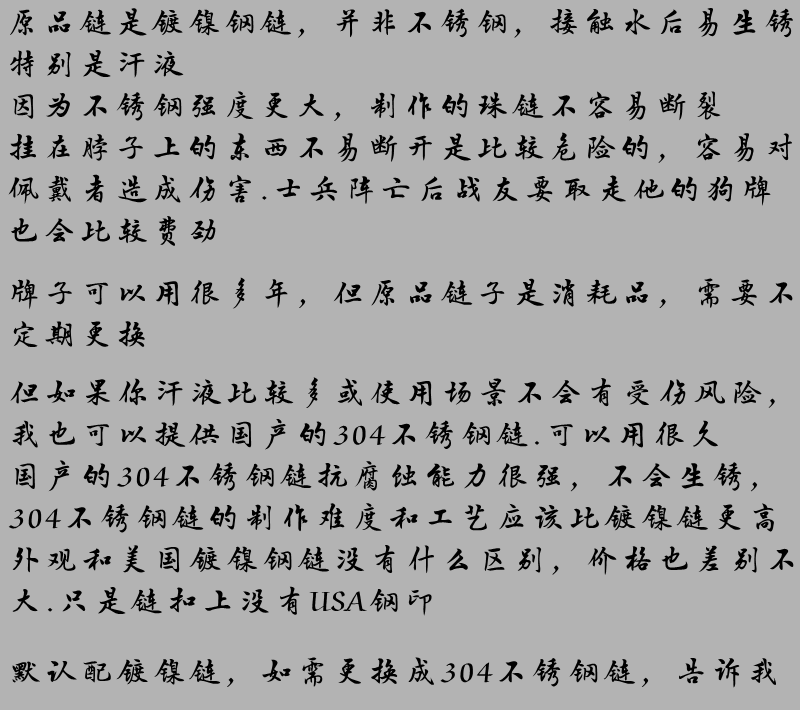 原品链是镀镍钢链，并非不锈钢，接触水后易生锈
特别是汗液
因为不锈钢强度更大，制作的珠链不容易断裂
挂在脖子上的东西不易断开是比较危险的，容易对
佩戴者造成伤害.士兵阵亡后战友要取走他的狗牌
也会比较费劲
牌子可以用很多年，但原品链子是消耗品，需要不
定期更换
但如果你汗液比较多或使用场景不会有受伤风险，
我也可以提供国产的304不锈钢链.可以用很久
国产的304不锈钢链抗腐蚀能力很强，不会生锈，
304不锈钢链的制作难度和工艺应该比镀镍链更高
外观和美国镀镍钢链没有什么区别，价格也差别不
大.只是链扣上没有USA钢印
默认配镀镍链，如需更换成304不锈钢链，告诉我